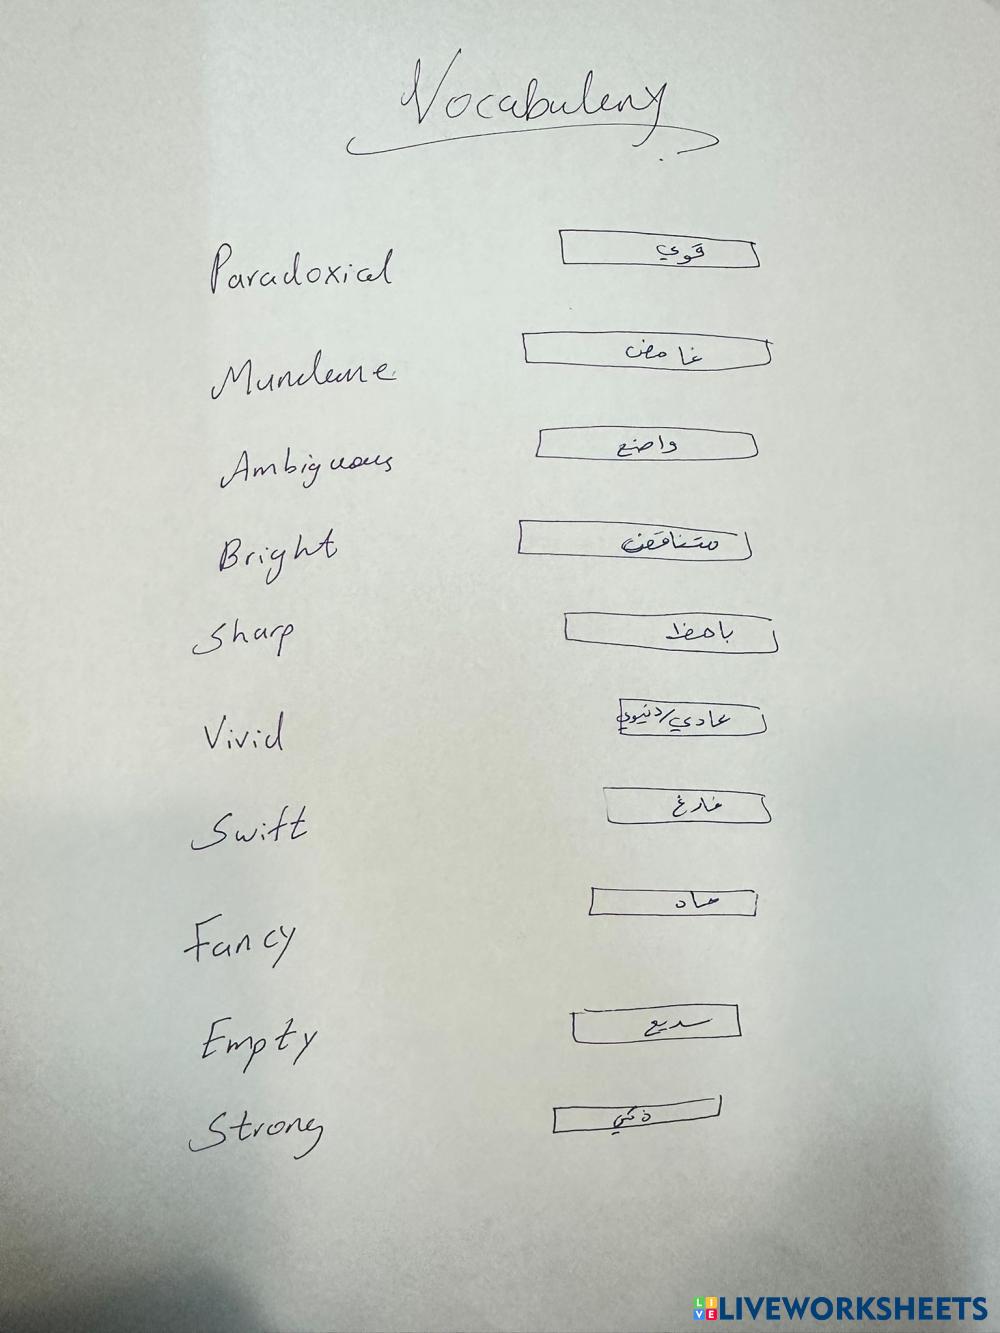 Vocabulery
Paradoxical قوي
Mundane غامض
Ambiguous واضح
Bright متناقض
Sharp باهظ
Vivid عادي/دنيوي
Swift فارغ
Fancy حاد
Empty سريع
Strong ذكي
LIVEWORKSHEETS